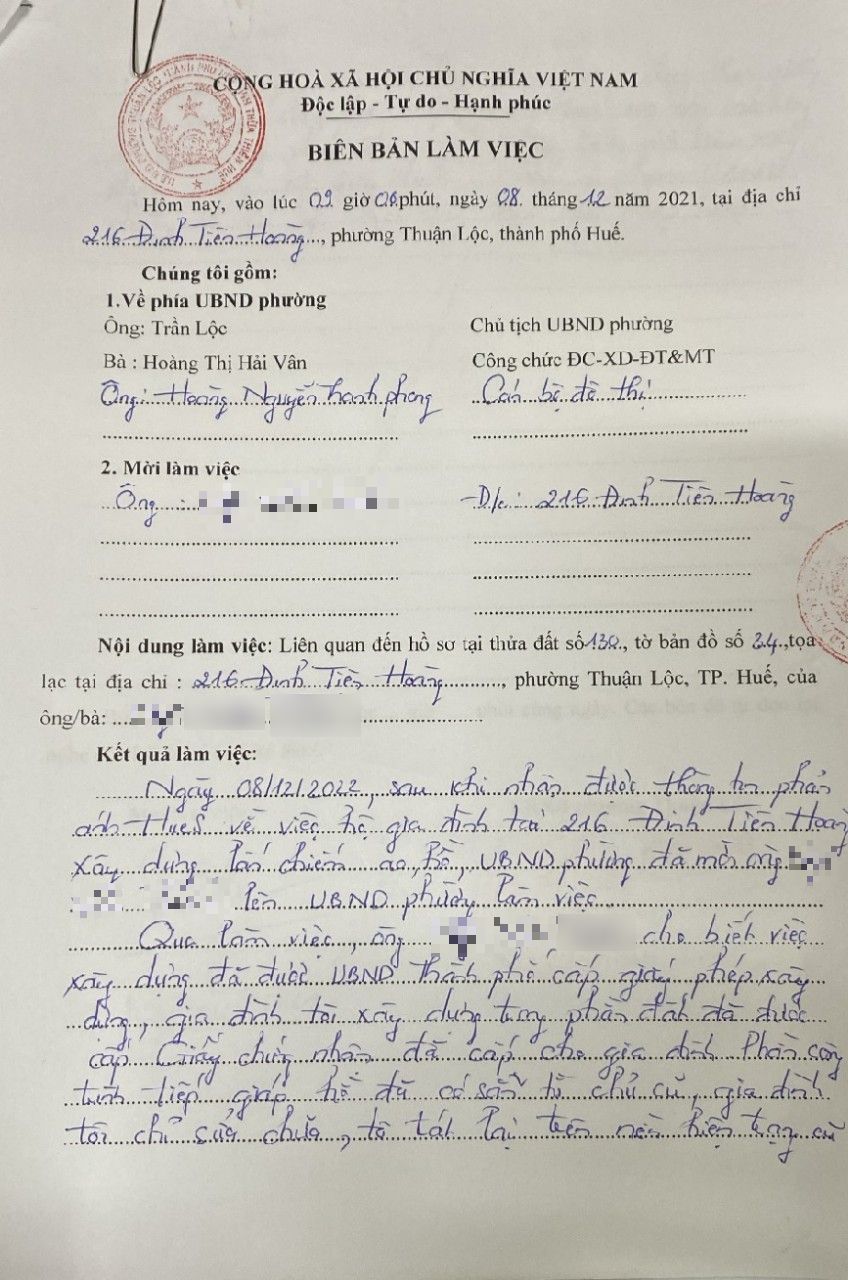 CỘNG HOÀ XÃ HỘI CHỦ NGHĨA VIỆT NAM
Độc lập - Tự do - Hạnh phúc
BIÊN BẢN LÀM VIỆC
Hôm nay, vào lúc 09 giờ 06 phút, ngày 08 tháng 12 năm 2021, tại địa chỉ
216 Đinh Tiên Hoàng, phường Thuận Lộc, thành phố Huế.
Chúng tôi gồm:
1.Về phía UBND phường
Ông: Trần Lộc Chủ tịch UBND phường
Bà : Hoàng Thị Hải Vân Công chức ĐC-XD-ĐT&MT
Ông: Hoàng Nguyễn Thanh phong Cán bộ đô thị
2. Mời làm việc
Ông : -Đ/c: 216 Đinh Tiên Hoàng
Nội dung làm việc: Liên quan đến hồ sơ tại thửa đất số 130, tờ bản đồ số 24, tọa
lạc tại địa chỉ : 216 Đinh Tiên Hoàng, phường Thuận Lộc, TP. Huế, của
ông/bà:
Kết quả làm việc:
Ngày 08/12/2022, sau khi nhận được thông tin phản
ánh HueS về việc hộ gia đình tại 216 Đinh Tiên Hoàng
xây dựng lấn chiếm ao, hồ, UBND phường đã mời ông
lên UBND phường làm việc
Qua làm việc, ông cho biết việc
xây dựng đã được UBND Thành phố cấp giấy phép xây
dựng, gia đình tôi xây dựng trong phần đất đã được
cấp Giấy chứng nhận đã cấp cho gia đình. Phần công
trình tiếp giáp hồ đã có sẵn từ chủ cũ, gia đình
tôi chỉ sửa chữa, tô trát lại trên nền hiện trạng cũ